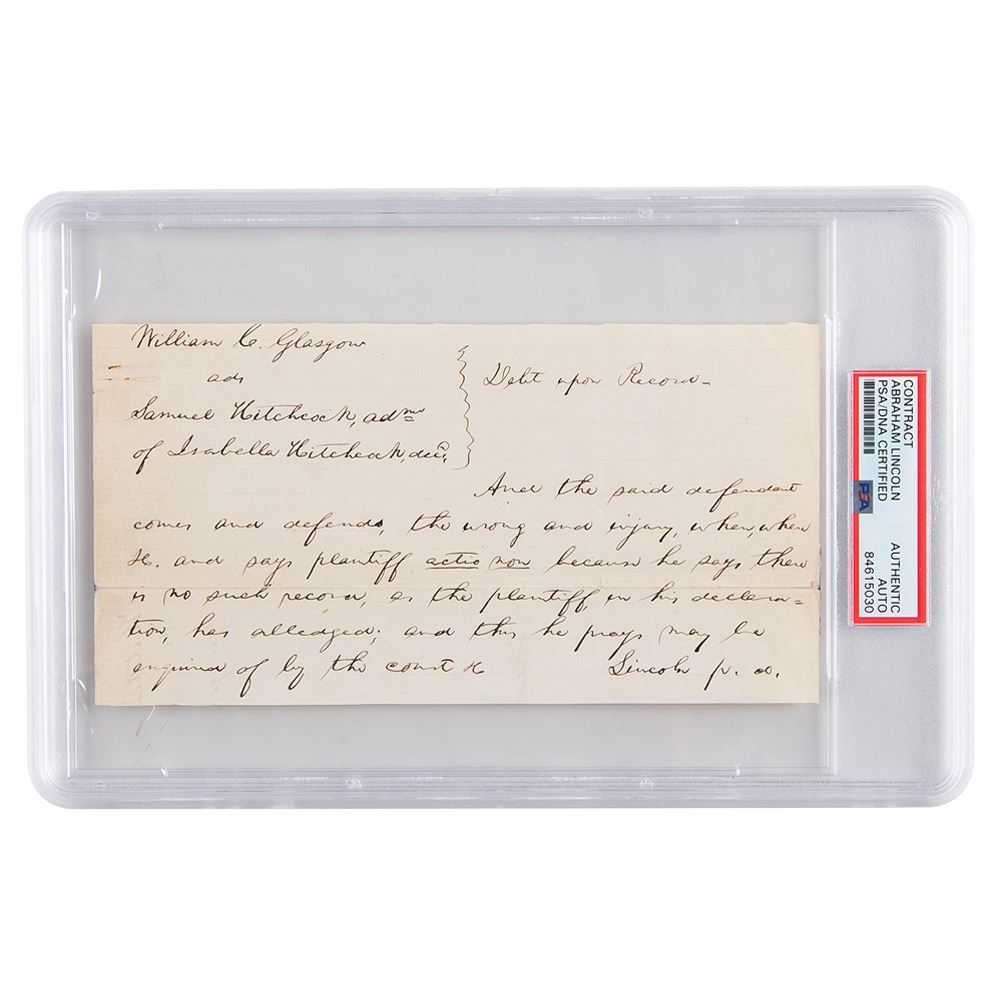 William C. Glasgow
ads
Samuel Hitchcock, admr
of Isabella Hitchcock, decd,
Debt upon Record=
And the said defendant
comes and defends, the wrong and injury, when, where
&c. and says plaintiff actio non because he says there
is no such record, as the plaintiff, in his declara=
tion, has alledged; and this he prays may be
enquired of by the court &c
Lincoln p. d.
CONTRACT
ABRAHAM LINCOLN
PSA/DNA CERTIFIED
AUTHENTIC
AUTO
84615030
PSA